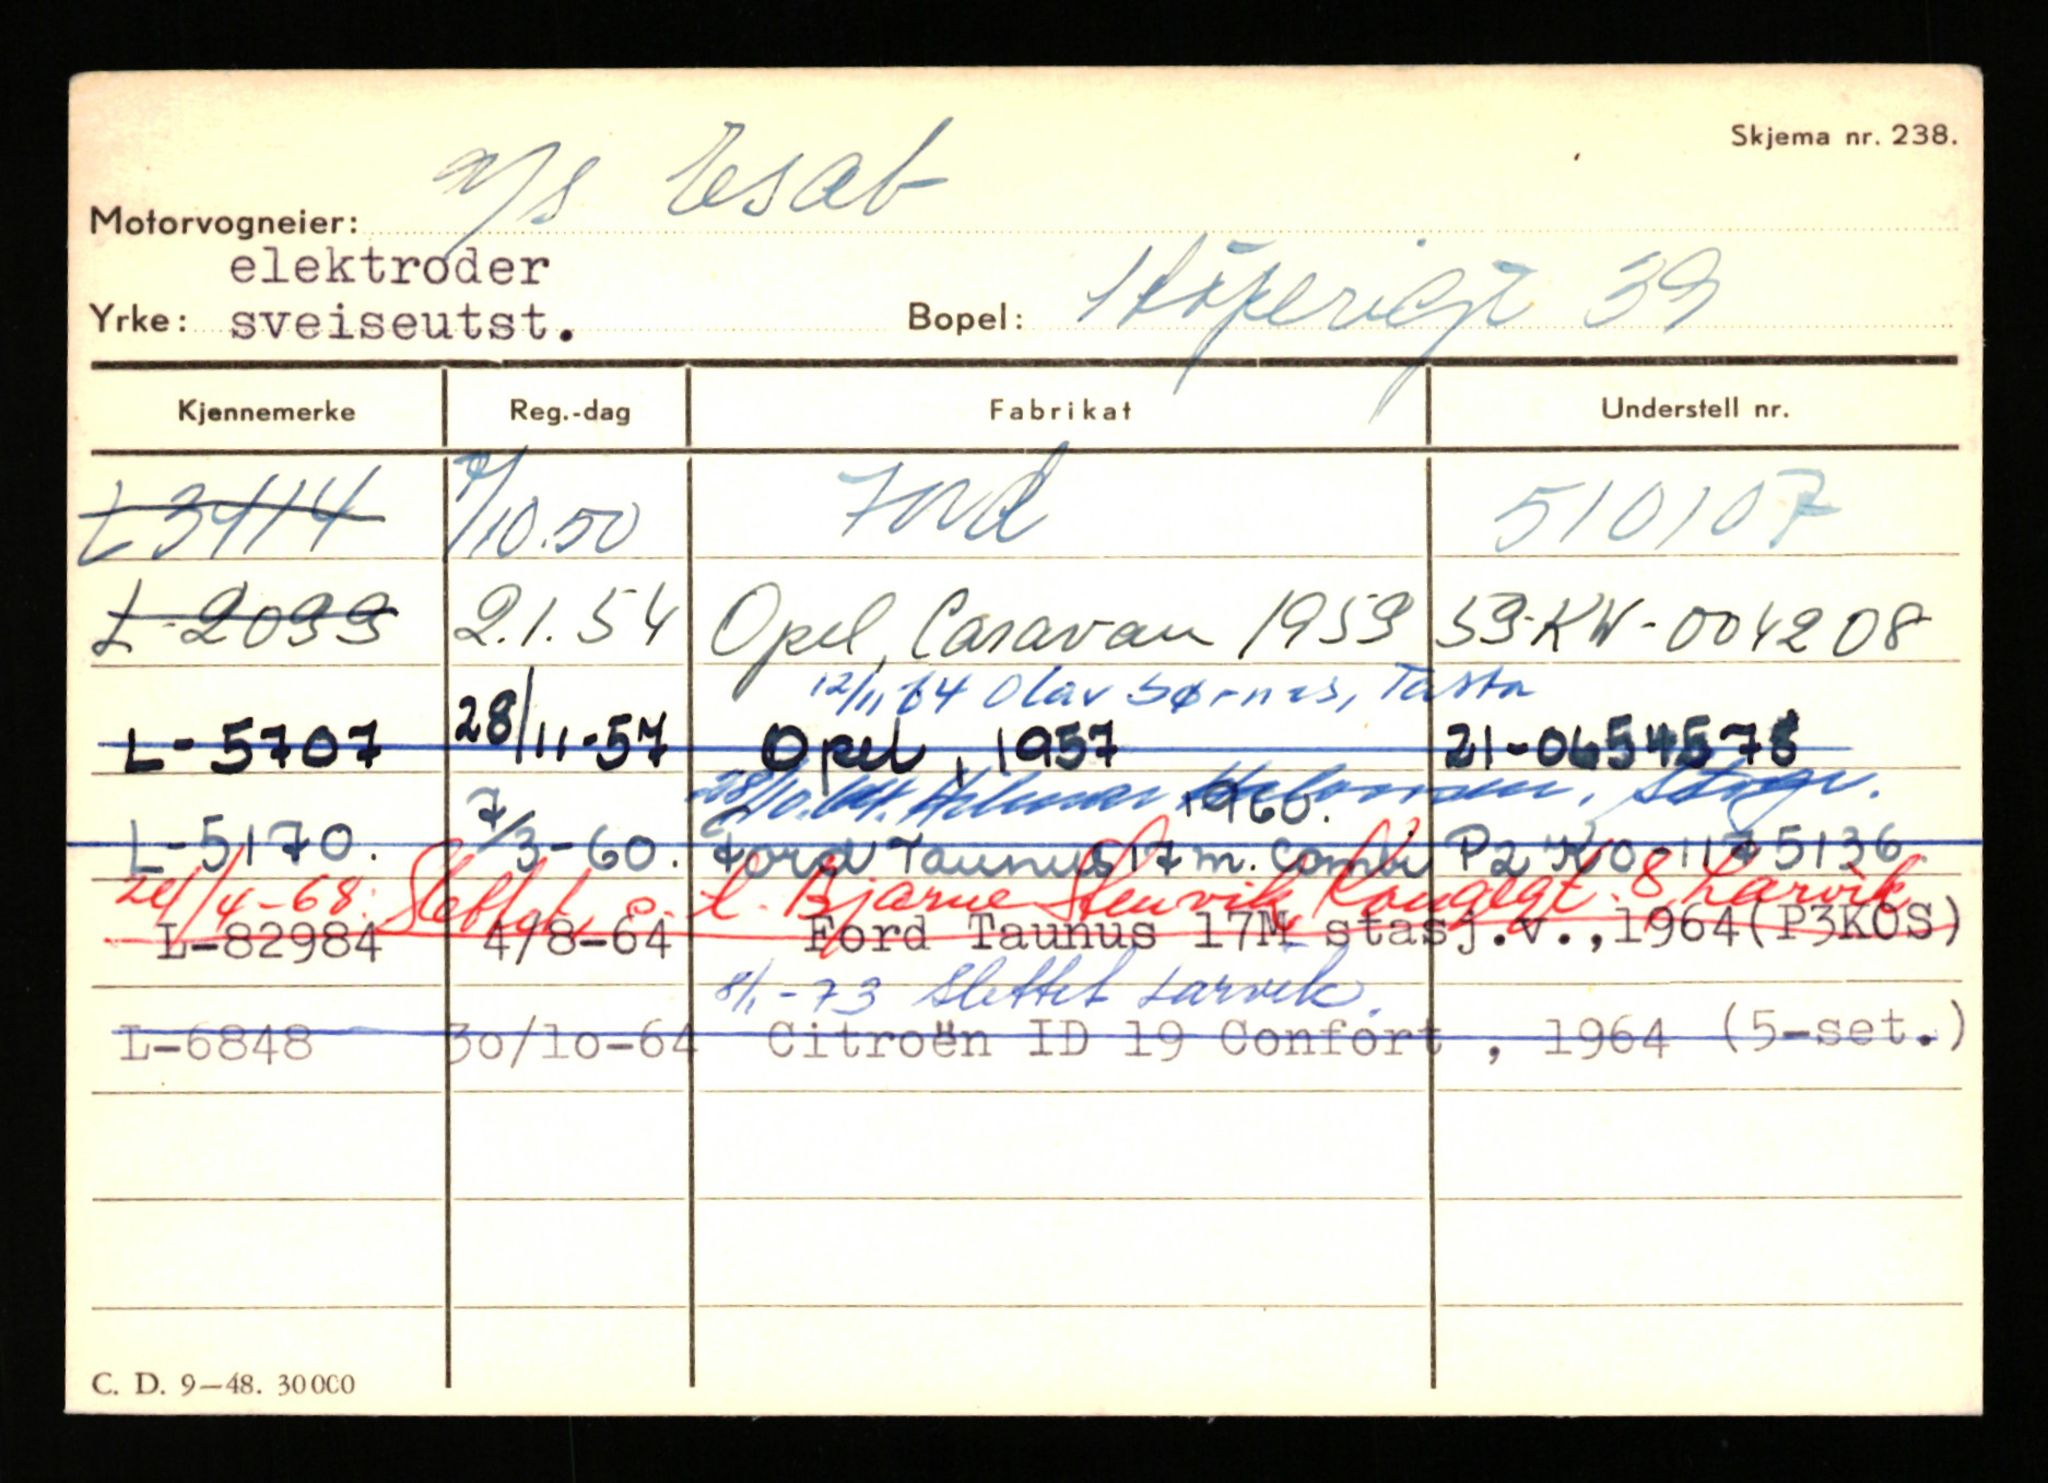 Skjema nr. 238.
Motorvogneier: A/S Esab
elektroder
Yrke: sveiseutst. Bopel: Støperigt 39
Kjennemerke Reg.-dag Fabrikat Understell nr.
L 3414 7/10.50 Ford 510107
L-2099 2.1.54 Opel, Caravan 1953 53-KW-004208
12/11.64 Olav Sørnes, Tasta
L-5707 28/11-57 Opel, 1957 21-0654578
28/10.64. Stvgr.
1960.
L-5170. 7/3-60. Ford Taunus 17 m. Combi P2 K0-1175136.
24/4-68. Slettet o. t. Bjarne Stenvik Kongegt. 8 Larvik
L-82984 4/8-64 Ford Taunus 17M stasj.v.,1964(P3KOS)
8/1-73 Slettet Larvik.
L-6848 30/10-64 Citroën ID 19 Confort , 1964 (5-set.)
C. D. 9—48. 30000